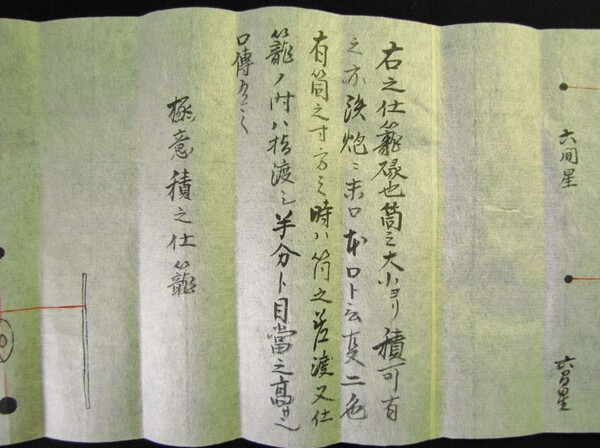 六間星
六間星
右之仕籠碌也筒之大小ヨリ積可有
之亦鉄炮ニ末口本口ト云事二色
有筒之寸方ミ時ハ筒之差渡又仕
籠ノ時ハ指渡シ半分ト目當之高サ也
口傳
極意積之仕籠